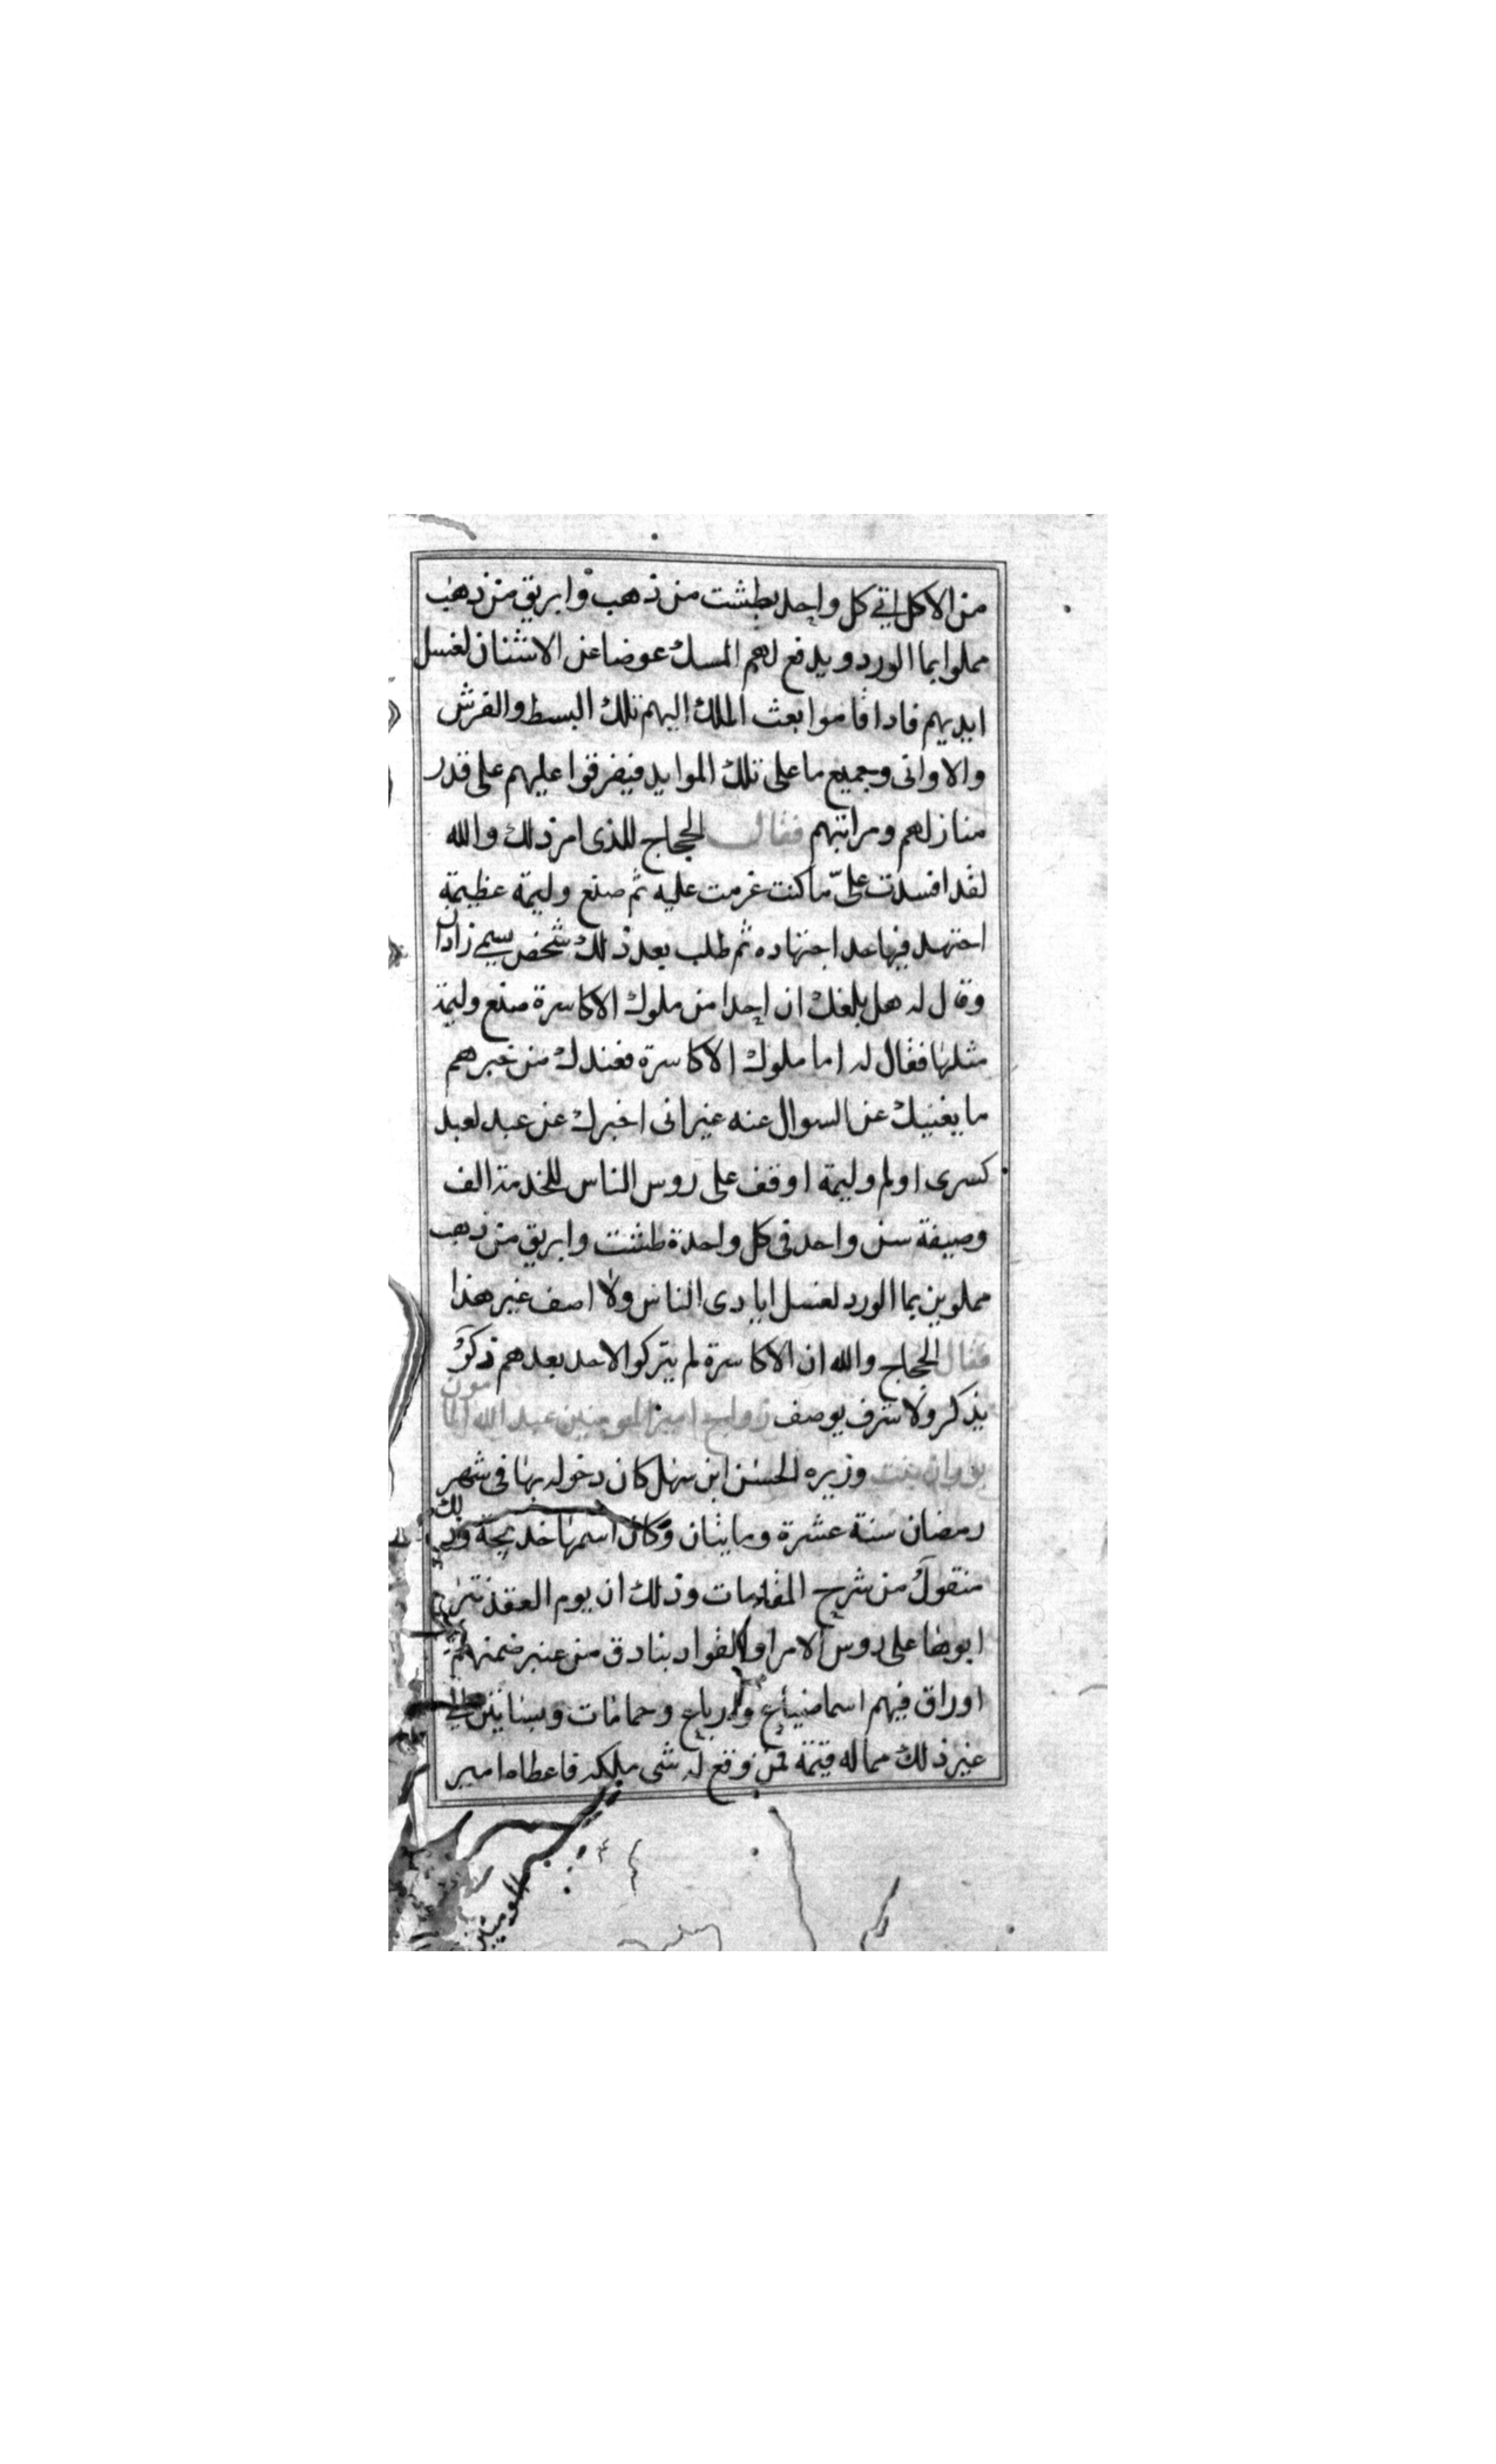 من الاكل اتي كل واحد بطشت من ذهب وابريق من ذهب
مملوا بما الورد ويدفع لهم المسك عوضا عن الاشنان لغسل
ايديهم فاذا قاموا بعث الملك اليهم تلك البسط والفرش
والاوانى وجميع ما على تلك الموايد فيفرقوا عليهم على قدر
منازلهم ومراتبهم فقال الحجاج للذى امر ذلك والله
لقد افسدت علىّ ما كنت عزمت عليه ثم صنع وليمة عظيمة
اجتهد فيها حد اجتهاده ثم طلب بعد ذلك شخص يسمي زادان
وقال له هل بلغك ان احدا من ملوك الاكاسرة صنع وليمة
مثلها فقال له اما ملوك الاكاسرة فعندك من خبرهم
ما يغنيك عن السوال عنه غير انى اخبرك عن عبد لعبد
كسرى اولم وليمة اوقف على روس الناس للخدمة الف
وصيفة سن واحد فى كل واحدة طشت وابريق من ذهب
مملوين بما الورد لغسل ايادى الناس ولا اصف غير هذا
فقال الحجاج والله ان الاكاسرة لم يتركوا لاحد بعدهم ذكرٌ
يذكر ولا شرف يوصف زواج امير المومنين عبد الله المامون
بوران بنت وزيره الحسن ابن سهل كان دخوله بها فى شهر
رمضان سنة عشرة ومايتان وكان اسمها خديجة وذلك
منقول من شرح المقامات وذلك ان يوم العقد نثر
ابوها على روس الامرا والقواد بنادق من عنبر ضمنهم
اوراق فيهم اسما ضياع وارباع وحمامات وبساتين الي
غير ذلك مما له قيمة فمن وقع له شى ملكه فاعطاه امير
المومنين